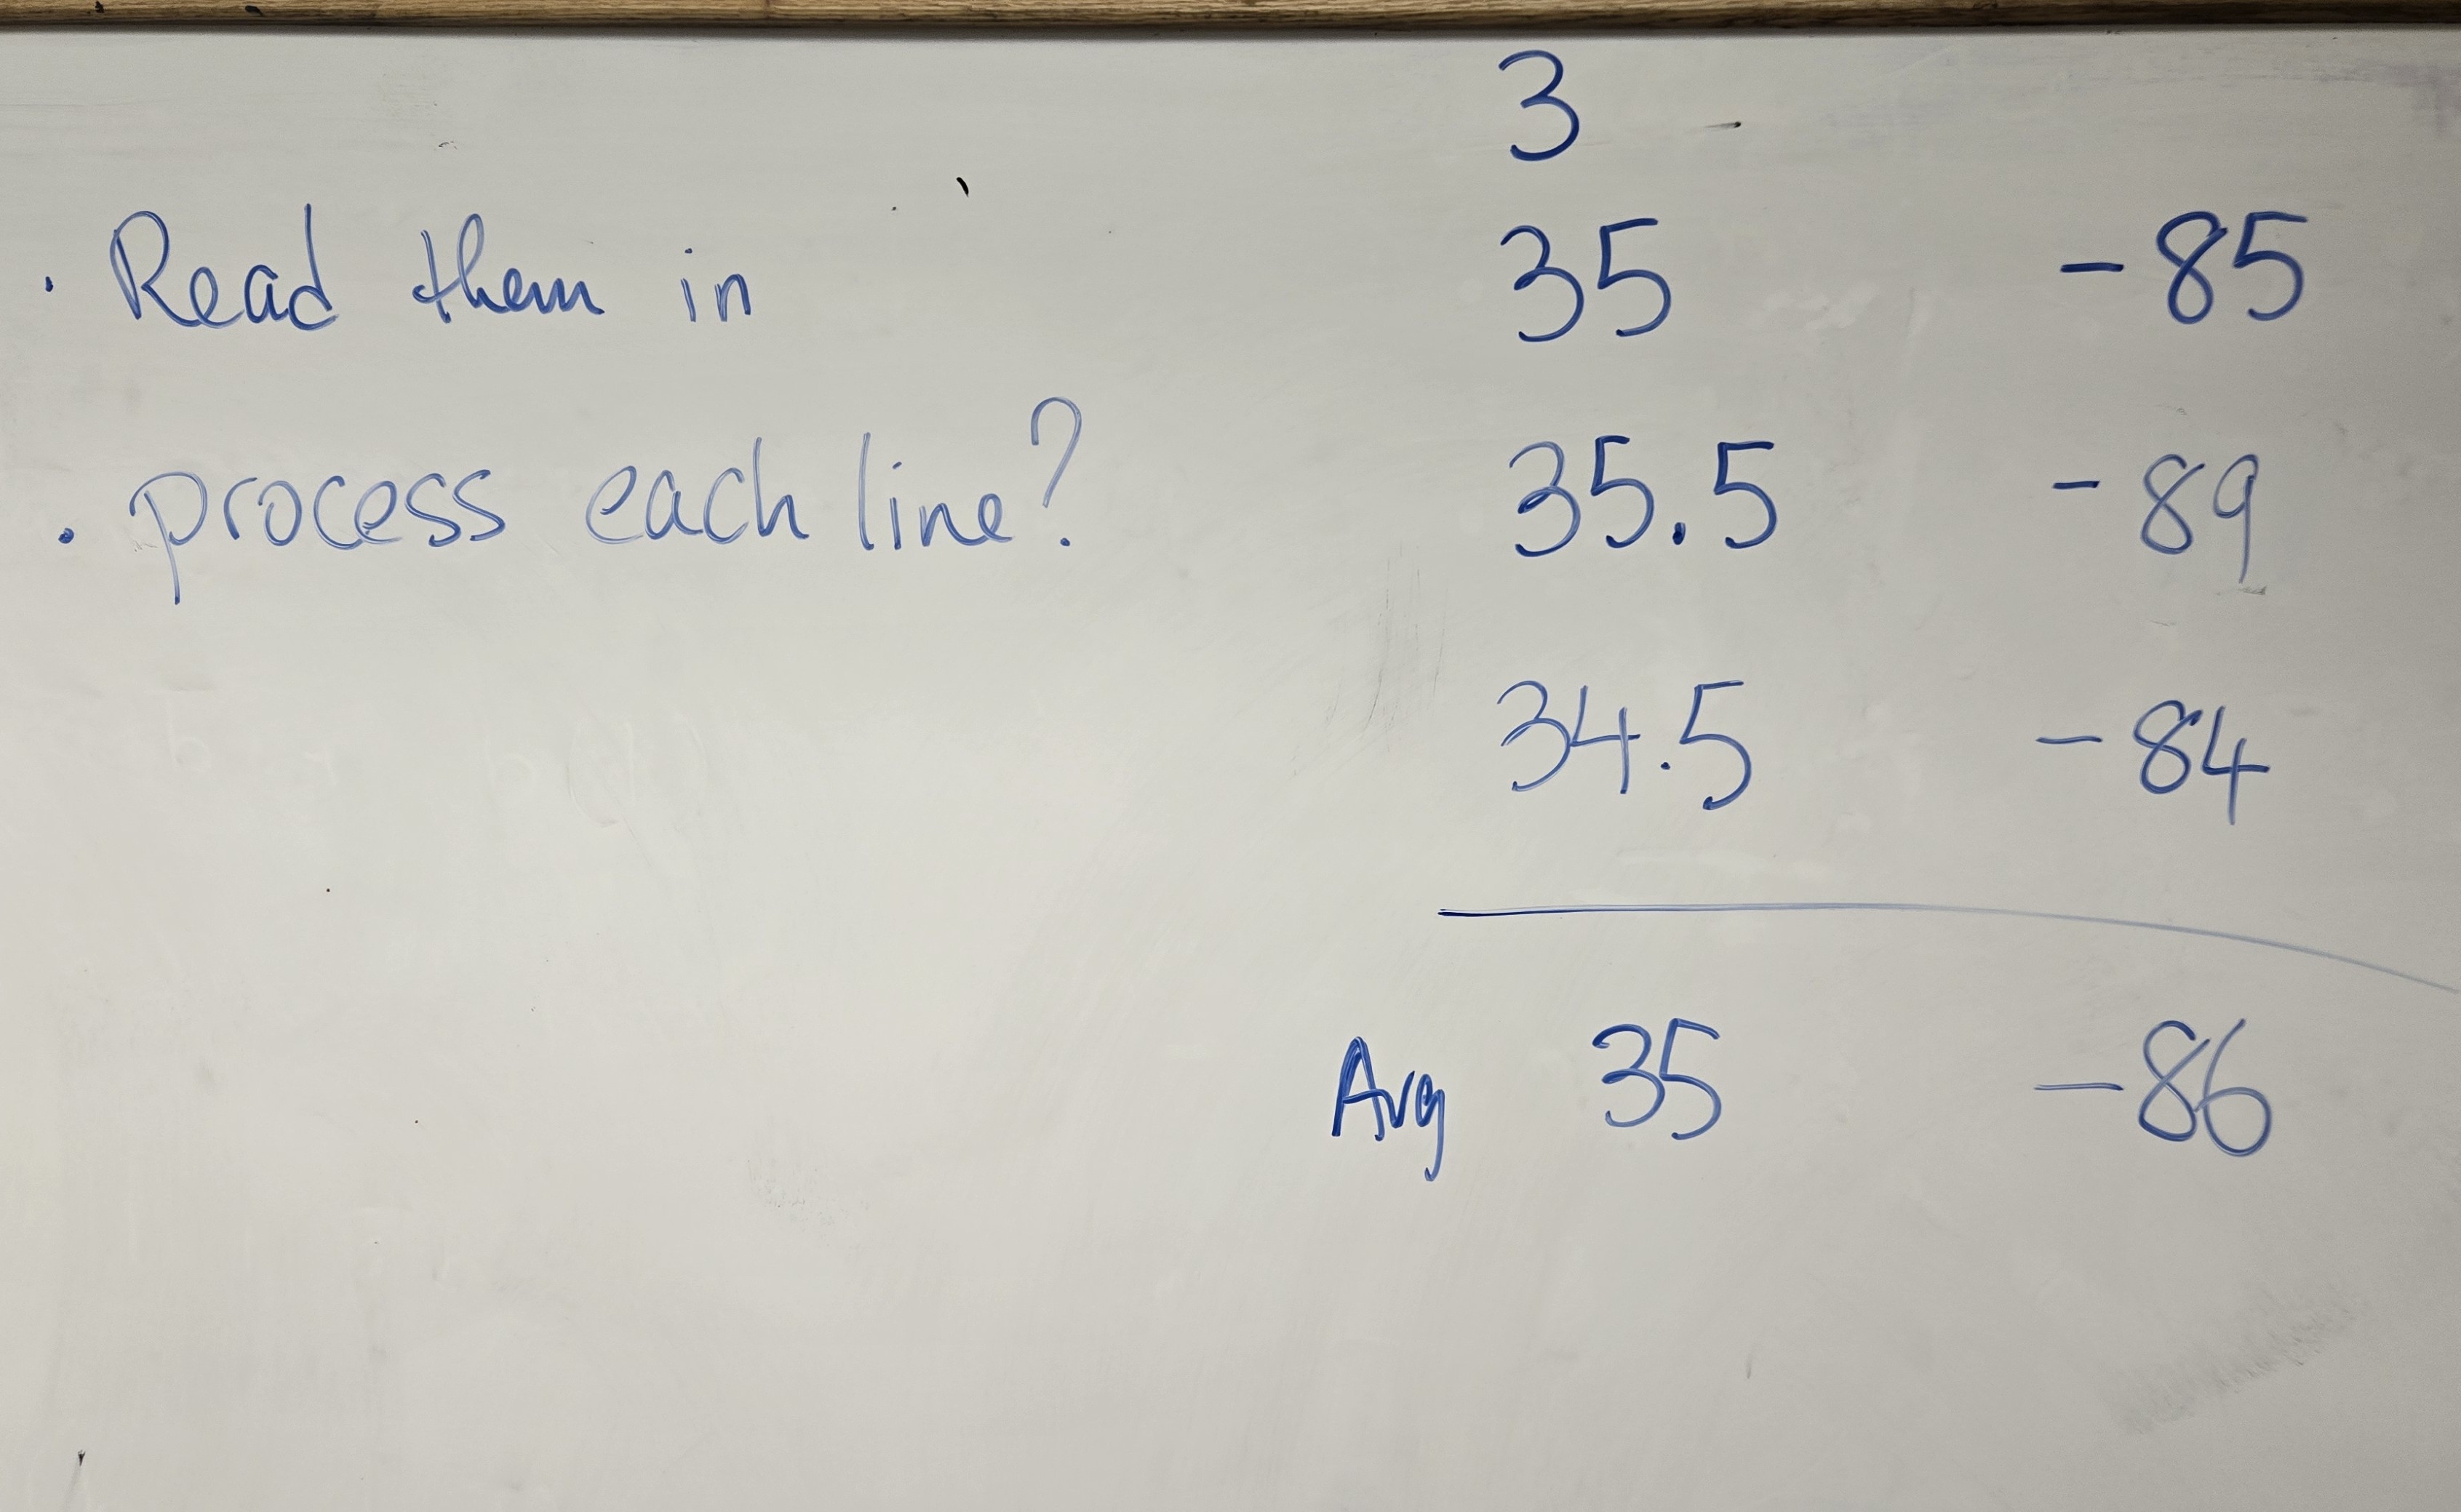 3
· Read them in 35 -85
· process each line? 35.5 -89
34.5 -84
Avg 35 -86